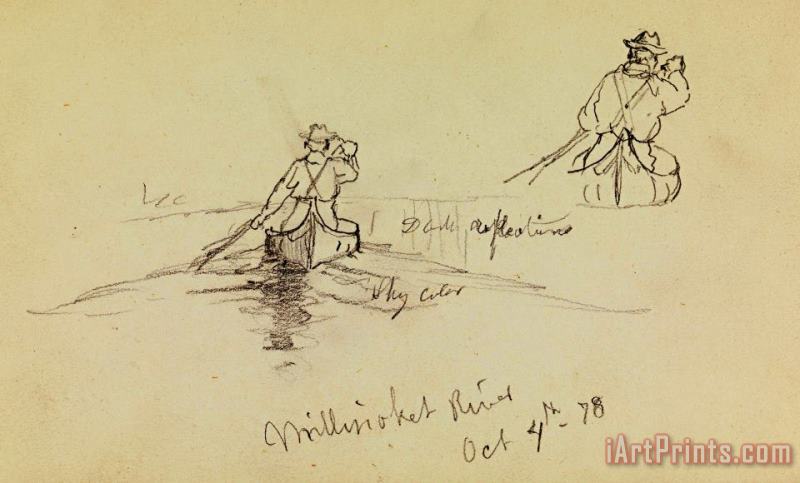 Dark reflections
Sky color
Millinoket River
Oct 4th - 78
iArtPrints.com